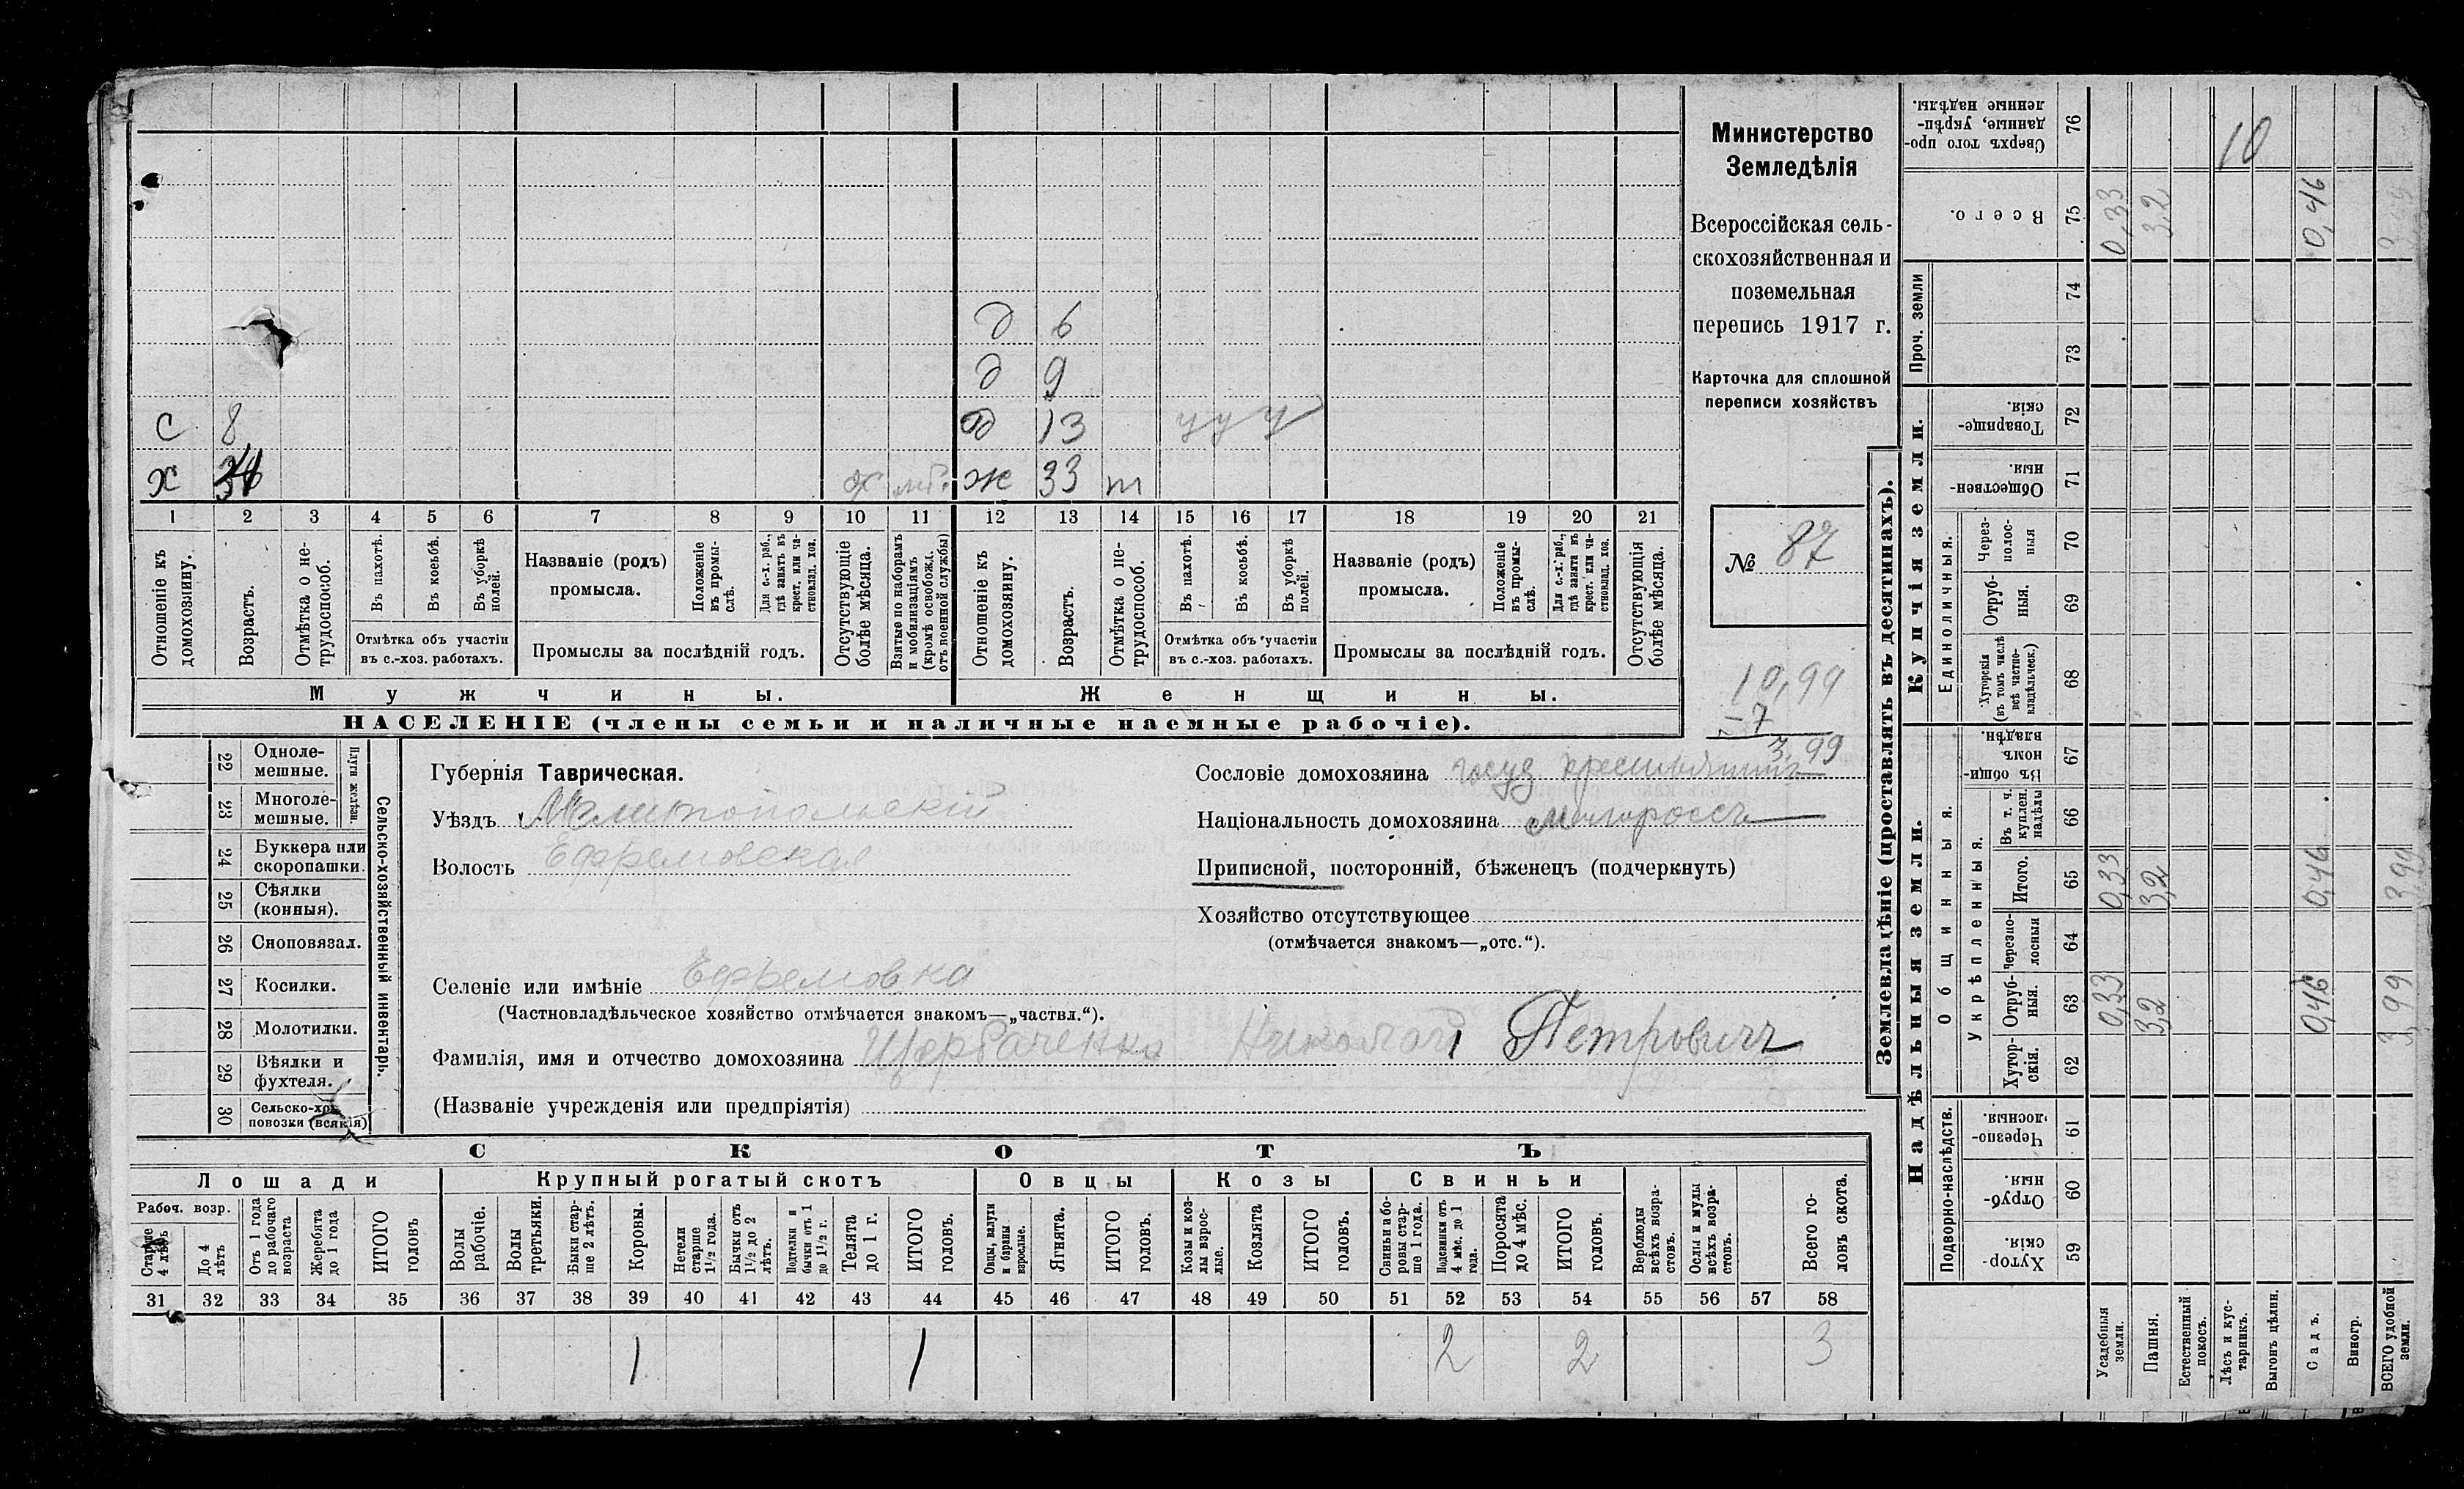 д 6
д 9
С 8 д 13 у у у
х отс моб. ж 33 т
1 2 3 4 5 6 7 8 9 10 11 12 13 14 15 16 17 18 19 20 21
Отношеніе къ домохозяину.
Возрастъ.
Отмѣтка о не-
трудоспособ.
Въ пахотѣ.
Въ косьбѣ.
Въ уборкѣ
полей.
Отмѣтка объ участіи
въ с.-хоз. работахъ.
Названіе (родъ)
промысла.
Положеніе
въ промы-
слѣ.
Для с.-х. раб.,
гдѣ занятъ въ
крест. или ча-
стновлад. хоз.
Промыслы за послѣдній годъ.
Отсутствующіе
болѣе мѣсяца.
Взятые по наборамъ
и мобилизаціямъ
(кромѣ освобожд.
отъ военной службы)
Отношеніе къ
домохозяину.
Возрастъ.
Отмѣтка о не-
трудоспособ.
Въ пахотѣ.
Въ косьбѣ.
Въ уборкѣ
полей.
Отмѣтка объ участіи
въ с.-хоз. работахъ.
Названіе (родъ)
промысла.
Положеніе
въ промы-
слѣ.
Для с.-х. раб.,
гдѣ занята въ
крест. или ча-
стновлад. хоз.
Промыслы за послѣдній годъ.
Отсутствующія
болѣе мѣсяца.
Мужчины. Женщины.
НАСЕЛЕНІЕ (члены семьи и наличные наемные рабочіе).
Министерство
Земледѣлія
Всероссійская сель-
скохозяйственная и
поземельная
перепись 1917 г.
Карточка для сплошной
переписи хозяйствъ
№ 87
10,99
- 7
3,99
22 Одноле-
мешные.
23 Многоле-
мешные.
Плуги желѣзн.
24 Буккера или
скоропашки.
25 Сѣялки
(конныя).
26 Сноповязал.
27 Косилки.
28 Молотилки.
29 Вѣялки и
фухтеля.
30 Сельско-хоз.
повозки (всякія)
Сельско-хозяйственный инвентарь.
Губернія Таврическая.
Уѣздъ Мелитопольскій
Волость Ефремовская
Селеніе или имѣніе Ефремовка
(Частновладѣльческое хозяйство отмѣчается знакомъ—„частвл.“).
Фамилія, имя и отчество домохозяина Щербаченко Николай Петровичъ
(Названіе учрежденія или предпріятія)
Сословіе домохозяина госуд крестьянинъ
Національность домохозяина малороссъ
Приписной, посторонній, бѣженецъ (подчеркнуть)
Хозяйство отсутствующее
(отмѣчается знакомъ—„отс.“).
СКОТЪ
Лошади Крупный рогатый скотъ Овцы Козы Свиньи
Рабоч. возр.
Старше
4 лѣтъ
До 4
лѣтъ
Отъ 1 года
до рабочаго
возраста
Жеребята
до 1 года
ИТОГО
головъ
Волы
рабочіе.
Волы
третьяки.
Быки стар-
ше 2 лѣтъ.
Коровы.
Нетели
старше
1½ года.
Бычки отъ
1½ до 2
лѣтъ.
Подтелки и
бычки отъ 1
до 1½ г.
Телята
до 1 г.
ИТОГО
головъ.
Овцы, валухи
и бараны
взрослые.
Ягнята.
ИТОГО
головъ.
Козы и коз-
лы взрос-
лые.
Козлята
ИТОГО
головъ.
Свиньи и бо-
ровы стар-
ше 1 года.
Подсвинки отъ
4 мѣс. до 1
года.
Поросята
до 4 мѣс.
ИТОГО
головъ.
Верблюды
всѣхъ возра-
стовъ.
Ослы и мулы
всѣхъ возра-
стовъ.
Всего го-
ловъ скота.
31 32 33 34 35 36 37 38 39 40 41 42 43 44 45 46 47 48 49 50 51 52 53 54 55 56 57 58
1 1 2 2 3
Землевладѣніе (проставлять въ десятинахъ).
Надѣльныя земли. Купчія земли. Проч. земли
Подворно-наслѣдств.
Общинныя.
Укрѣпленныя.
Единоличныя.
Хутор-
скія. 59
Отруб-
ныя. 60
Черезпо-
лосныя. 61
Хутор-
скія. 62
Отруб-
ныя. 63
Черезпо-
лосныя 64
Итого. 65
Въ т. ч.
куплен.
надѣлы 66
Въ общи-
номъ
владѣн. 67
Хуторскія
(въ томъ числѣ
всѣ частно-
владѣльческ.) 68
Отруб-
ныя. 69
Через-
полос-
ныя 70
Обществен-
ныя. 71
Товарище-
скія. 72
73
74
Всего. 75
Сверхъ того про-
данные, укрѣп-
ленные надѣлы. 76
Усадебныя
земли. 0,33 0,33 0,33
Пашня. 3,2 3,2 3,2
Естественный
покосъ.
Лѣсъ и кус-
тарникъ. 10
Выгонъ цѣлин.
Садъ. 0,46 0,46 0,46
Виногр.
ВСЕГО удобной
земли. 3,99 3,99